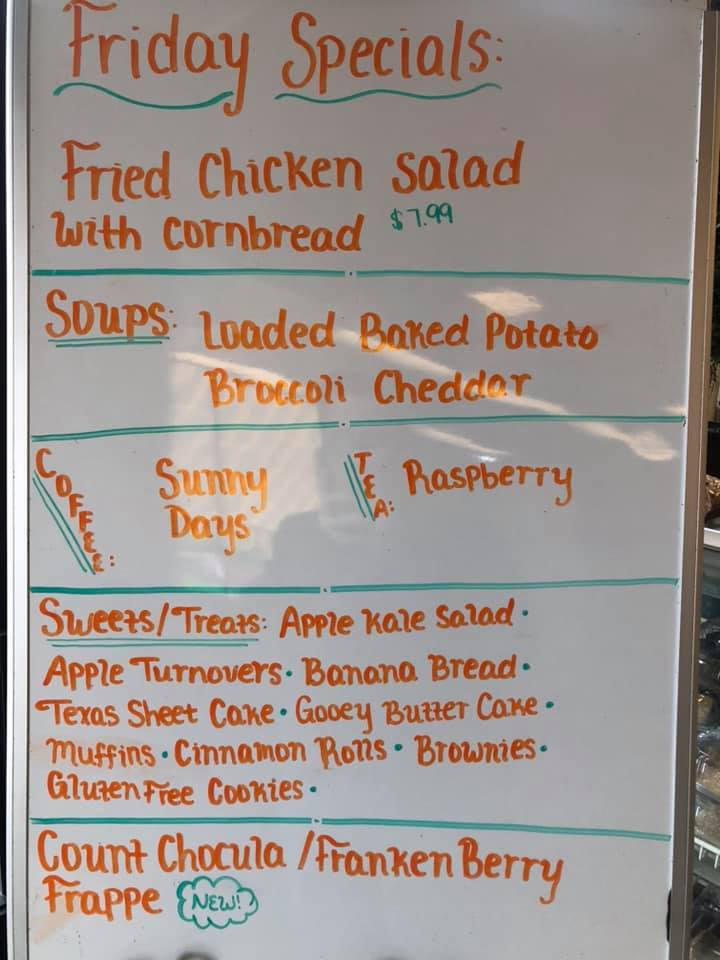 Friday Specials:
Fried Chicken Salad
with Cornbread $7.99
Soups: Loaded Baked Potato
Broccoli Cheddar
COFFEE: Sunny
Days
TEA: Raspberry
Sweets/Treats: Apple Kale Salad •
Apple Turnovers • Banana Bread •
Texas Sheet Cake • Gooey Butter Cake •
Muffins • Cinnamon Rolls • Brownies •
Gluten Free Cookies •
Count Chocula / Franken Berry
Frappe NEW!